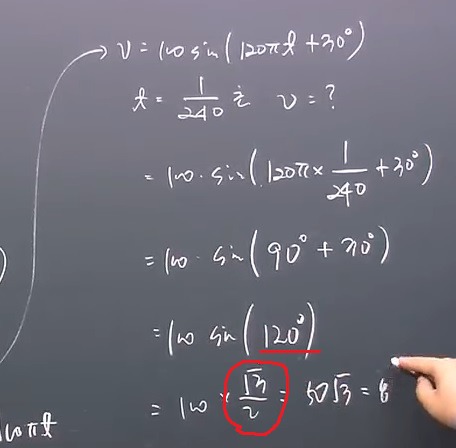 v = 100 sin(120πt + 30°)
t = 1/240 초 v = ?
= 100 · sin(120π × 1/240 + 30°)
= 100 · sin(90° + 30°)
= 100 sin(120°)
= 100 × √3/2 = 50√3 = 8
πt